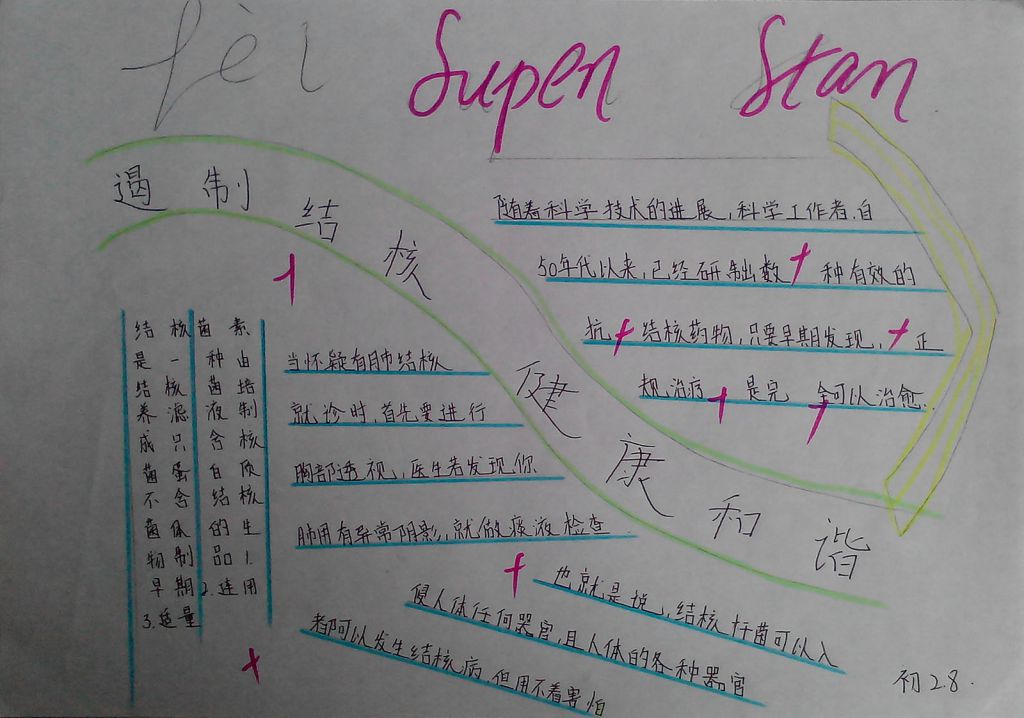 fèi Super Star
遏制结核 健康和谐
随着科学技术的进展,科学工作者,自
50年代以来,已经研制出数 种有效的
抗 结核药物,只要早期发现, 正
规治疗 是完 全可以治愈.
结核菌素
是一种由
结核菌培
养滤液制
成只含核
菌蛋白质
不含结核
菌体的生
物制品1.
早期2.连用
3.适量
当怀疑有肺结核
就诊时,首先要进行
胸部透视,医生若发现你
肺用有异常阴影,就做痰液检查
也就是说,结核杆菌可以入
侵人体任何器官,且人体的各种器官
都可以发生结核病,但用不着害怕
初2.8.